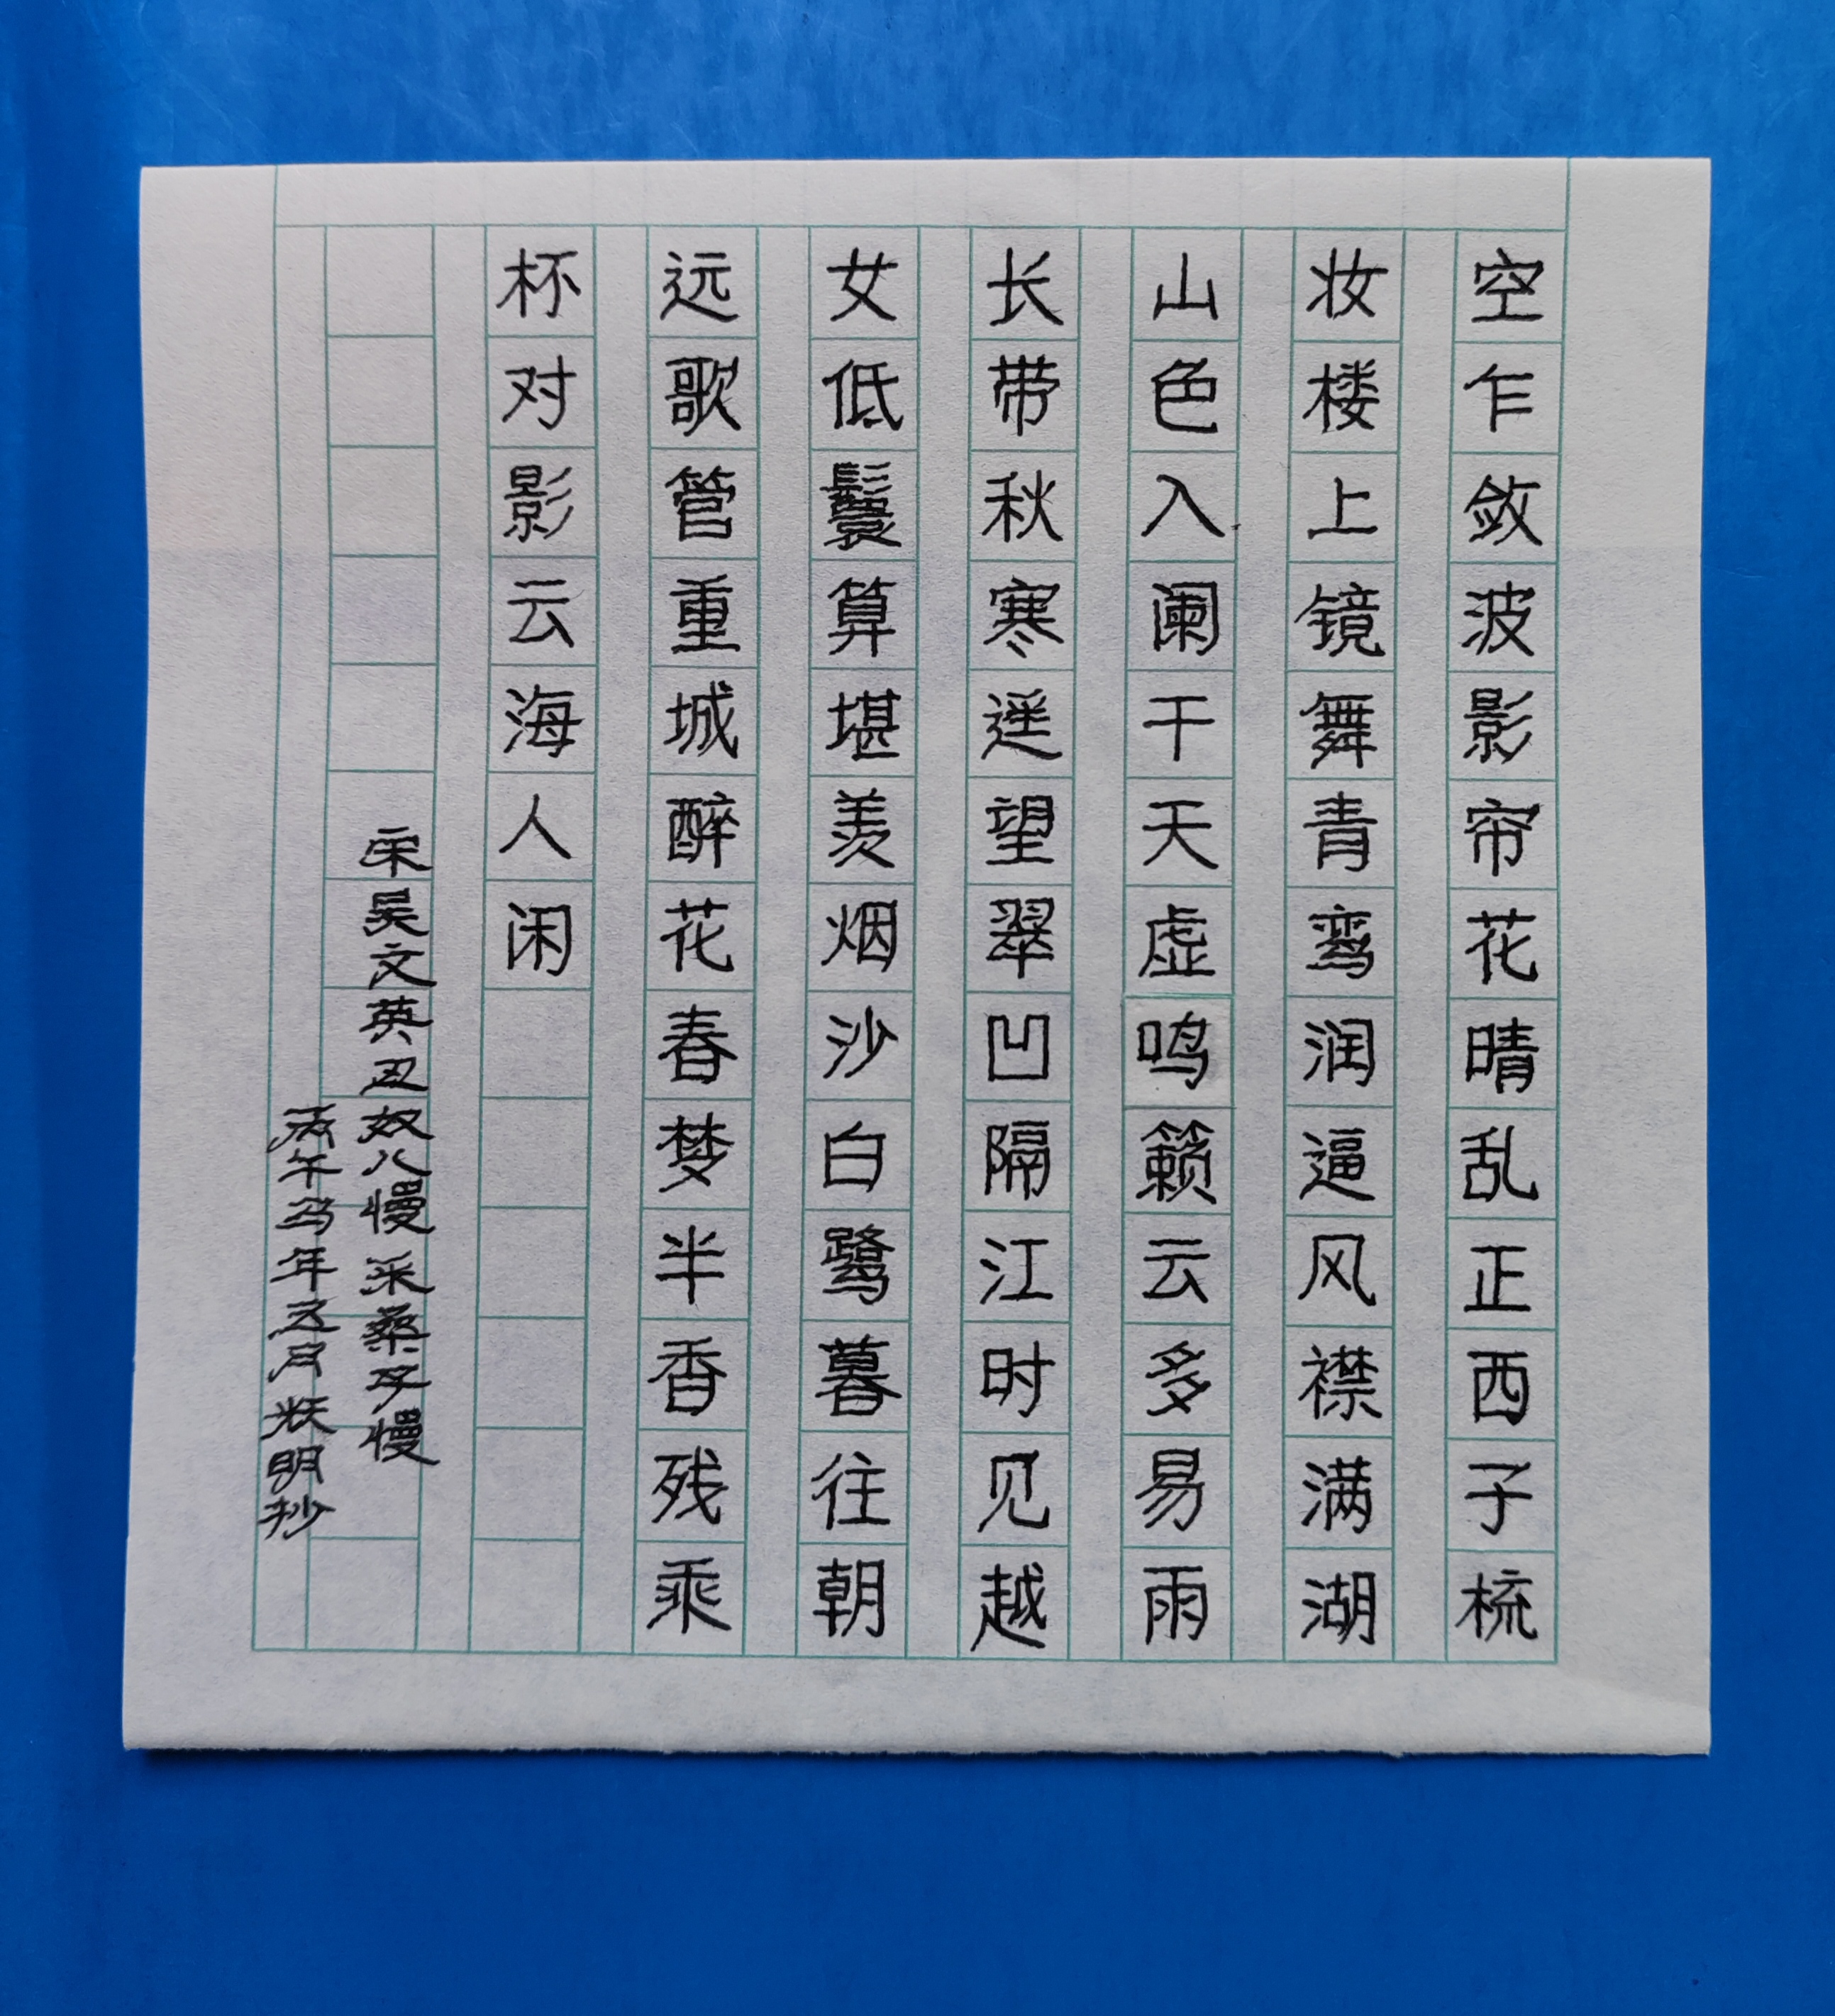 空乍敛波影帘花晴乱正西子梳
妆楼上镜舞青鸾润逼风襟满湖
山色入阑干天虚鸣籁云多易雨
长带秋寒遥望翠凹隔江时见越
女低鬟算堪羡烟沙白鹭暮往朝
远歌管重城醉花春梦半香残乘
杯对影云海人闲
宋吴文英丑奴儿慢采桑子慢
丙午马年五月明抄